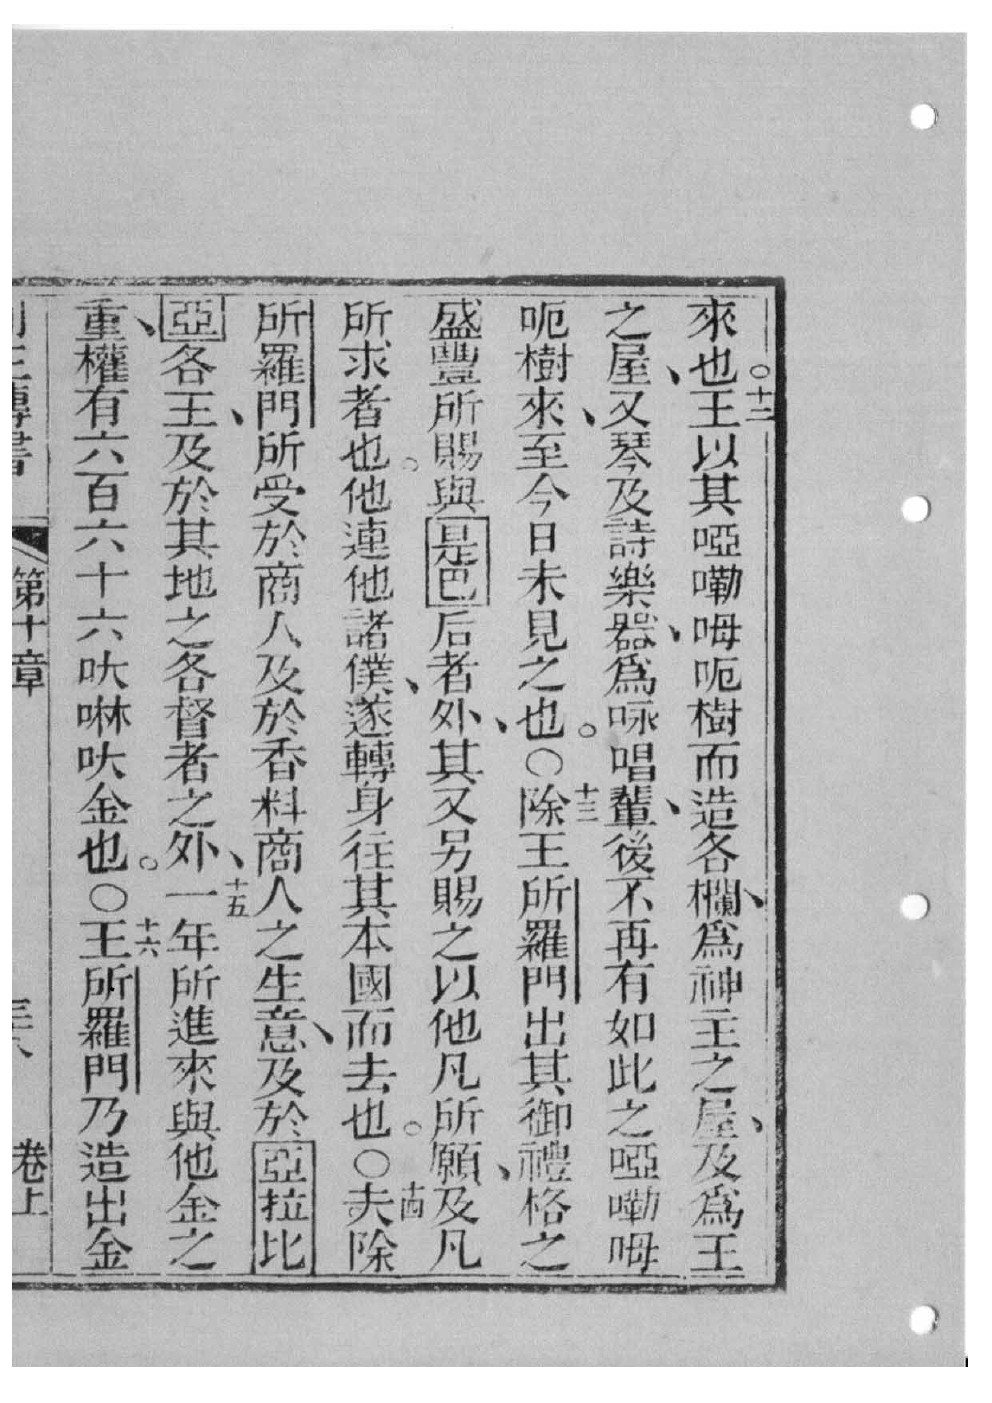 來也○十二王以其啞嘞呣呃樹而造各欄、爲神主之屋、及爲王
之屋、又琴及詩樂器、爲咏唱輩、後不再有如此之啞嘞呣
呃樹來、至今日未見之也。○十三除王所羅門出其御禮格之
盛豐所賜與是巴后者外、其又另賜之以他凡所願、及凡
所求者也。他連他諸僕、遂轉身往其本國而去也。○十四夫除
所羅門所受於商人及於香料商人之生意、及於亞拉比
亞各王、及於其地之各督者之外、十五一年所進來與他金之
重、權有六百六十六吙啉吙金也。○十六王所羅門乃造出金
列王傳書 第十章 三八 卷上